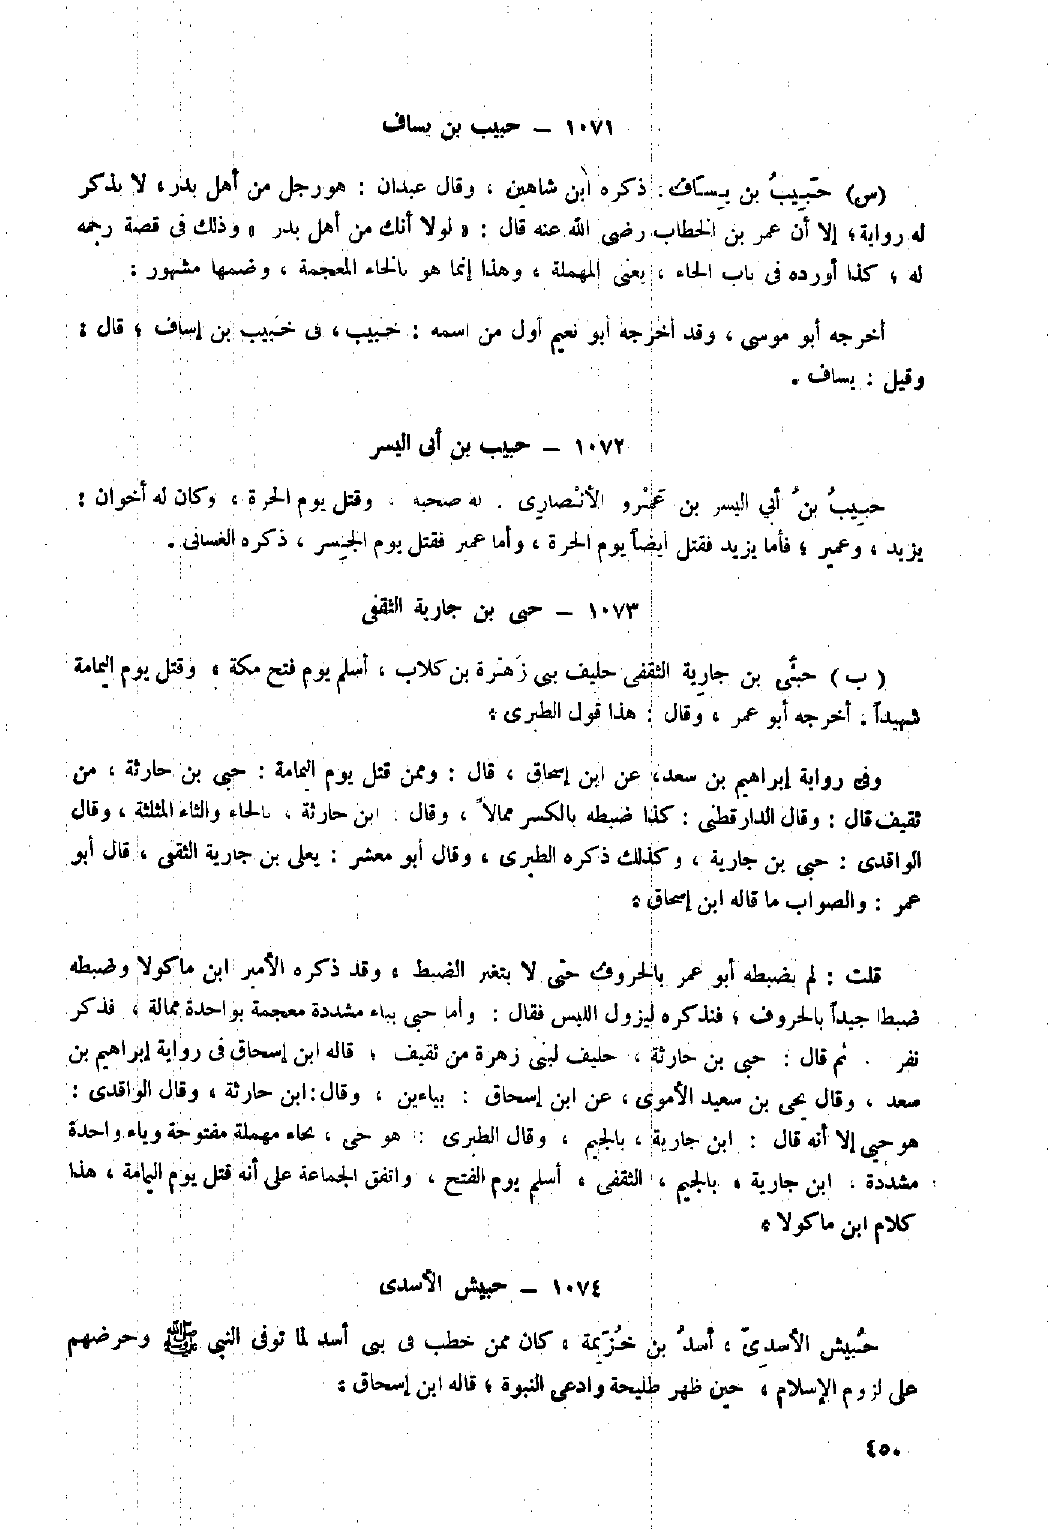 ١٠٧١ – حبيب بن يساف
(س) حَبِيبُ بن يِسَاف . ذكره ابن شاهين ، وقال عبدان : هو رجل من أهل بدر ، لا يذكر
له رواية ؛ إلا أن عمر بن الخطاب رضى الله عنه قال : « لولا أنك من أهل بدر » وذلك فى قصة رجمه
له ؛ كذا أورده فى باب الحاء ، يعنى المهملة ، وهذا إنما هو بالخاء المعجمة ، وضمها مشهور :
أخرجه أبو موسى ، وقد أخرجه أبو نعيم أول من اسمه : خبيب ، فى خبيب بن إساف ؛ قال :
وقيل : يساف .
١٠٧٢ – حبيب بن أبى اليسر
حبيبُ بنُ أبي اليسر بن عَمْرو الأنْصارى . له صحبه ، وقتل يوم الحرة ، وكان له أخوان :
يزيد ، وعمير ؛ فأما يزيد فقتل أيضاً يوم الحرة ، وأما عمير فقتل يوم الجِسر ، ذكره الغسانى .
١٠٧٣ – حبى بن جارية الثقفى
( ب ) حبَّى بن جارِية الثقفى حليف بنى زَهْرة بن كلاب ، أسلم يوم فتح مكة ، وقتل يوم اليمامة
شهيداً . أخرجه أبو عمر ، وقال : هذا قول الطبرى ؛
وفى رواية إبراهيم بن سعد ، عن ابن إسحاق ، قال : وممن قتل يوم اليمامة : حبى بن حارثة ، من
ثقيف قال : وقال الدارقطنى : كذا ضبطه بالكسر ممالاً ، وقال . ابن حارثة ، بالحاء والثاء المثلثة ، وقال
الواقدى : حبى بن جارية ، وكذلك ذكره الطبرى ، وقال أبو معشر : يعلى بن جارية الثقفى ، قال أبو
عمر : والصواب ما قاله ابن إسحاق ؛
قلت : لم يضبطه أبو عمر بالحروف حتى لا يتغير الضبط ، وقد ذكره الأمير ابن ماكولا وضبطه
ضبطا جيداً بالحروف ؛ فنذكره ليزول اللبس فقال : وأما حبى بباء مشددة معجمة بواحدة ممالة ، فذكر
نفر . ثم قال : حبى بن حارثة ، حليف لبنى زهرة من ثقيف ؛ قاله ابن إسحاق فى رواية إبراهيم بن
سعد ، وقال يحيى بن سعيد الأموى ، عن ابن إسحاق : بياءين ، وقال : ابن حارثة ، وقال الواقدى :
هو حيى إلا أنه قال : ابن جارية ، بالجيم ، وقال الطبرى : هو حى ، بحاء مهملة مفتوحة وياء واحدة
مشددة . ابن جارية ، بالجيم ، الثقفى ، أسلم يوم الفتح ، واتفق الجماعة على أنه قتل يوم اليمامة ، هذا
كلام ابن ماكولا ؛
١٠٧٤ – حبيش الأسدى
حُبيش الأسدىّ ، أسدُ بن خُزَيمة ، كان ممن خطب فى بنى أسد لما توفى النبى ﷺ وحرضهم
على لزوم الإسلام ، حين ظهر طليحة وادعى النبوة ؛ قاله ابن إسحاق ؛
٤٥٠